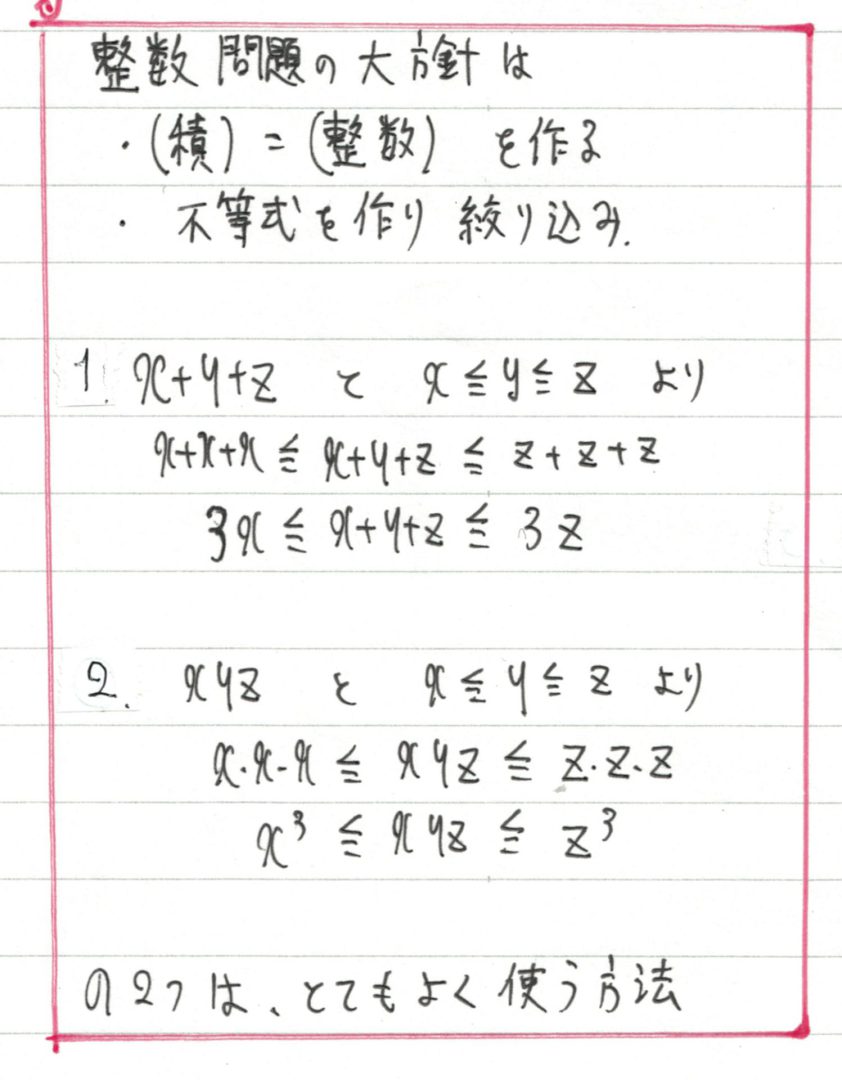 整数問題の大方針は
・(積) = (整数) を作る
・不等式を作り絞り込み.
1. x+y+z と x ≦ y ≦ z より
x+x+x ≦ x+y+z ≦ z+z+z
3x ≦ x+y+z ≦ 3z
2. xyz と x ≦ y ≦ z より
x・x・x ≦ xyz ≦ z・z・z
x³ ≦ xyz ≦ z³
の2つは、とてもよく使う方法